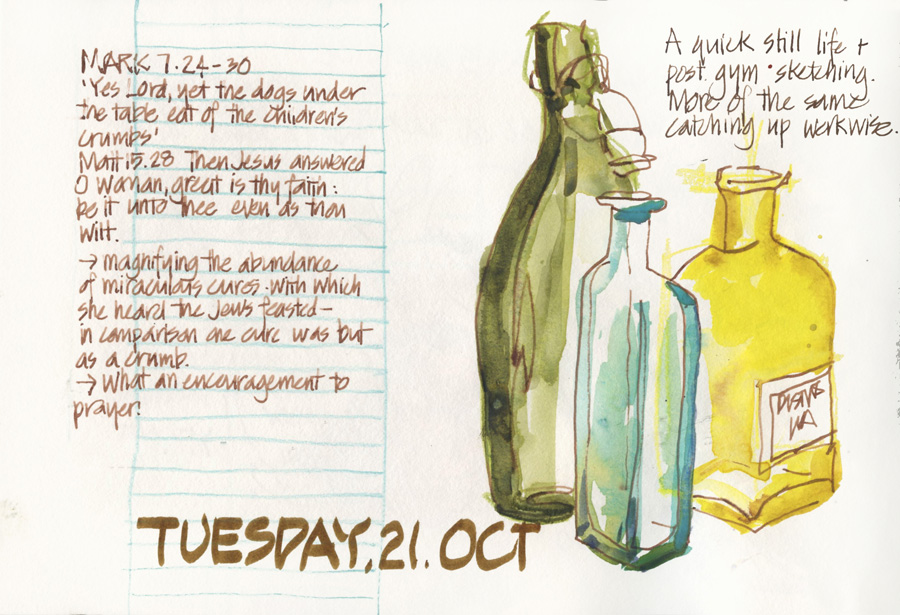 MARK 7.24-30
'Yes Lord, yet the dogs under
the table eat of the children's
crumbs'
Matt 15.28 Then Jesus answered
O Woman, great is thy faith:
be it unto thee even as thou
wilt.
→ magnifying the abundance
of miraculous cures with which
she heard the Jews feasted—
in comparison one cure was but
as a crumb.
→ What an encouragement to
prayer!
A quick still life +
post gym sketching.
More of the same
catching up workwise.
TUESDAY, 21. OCT